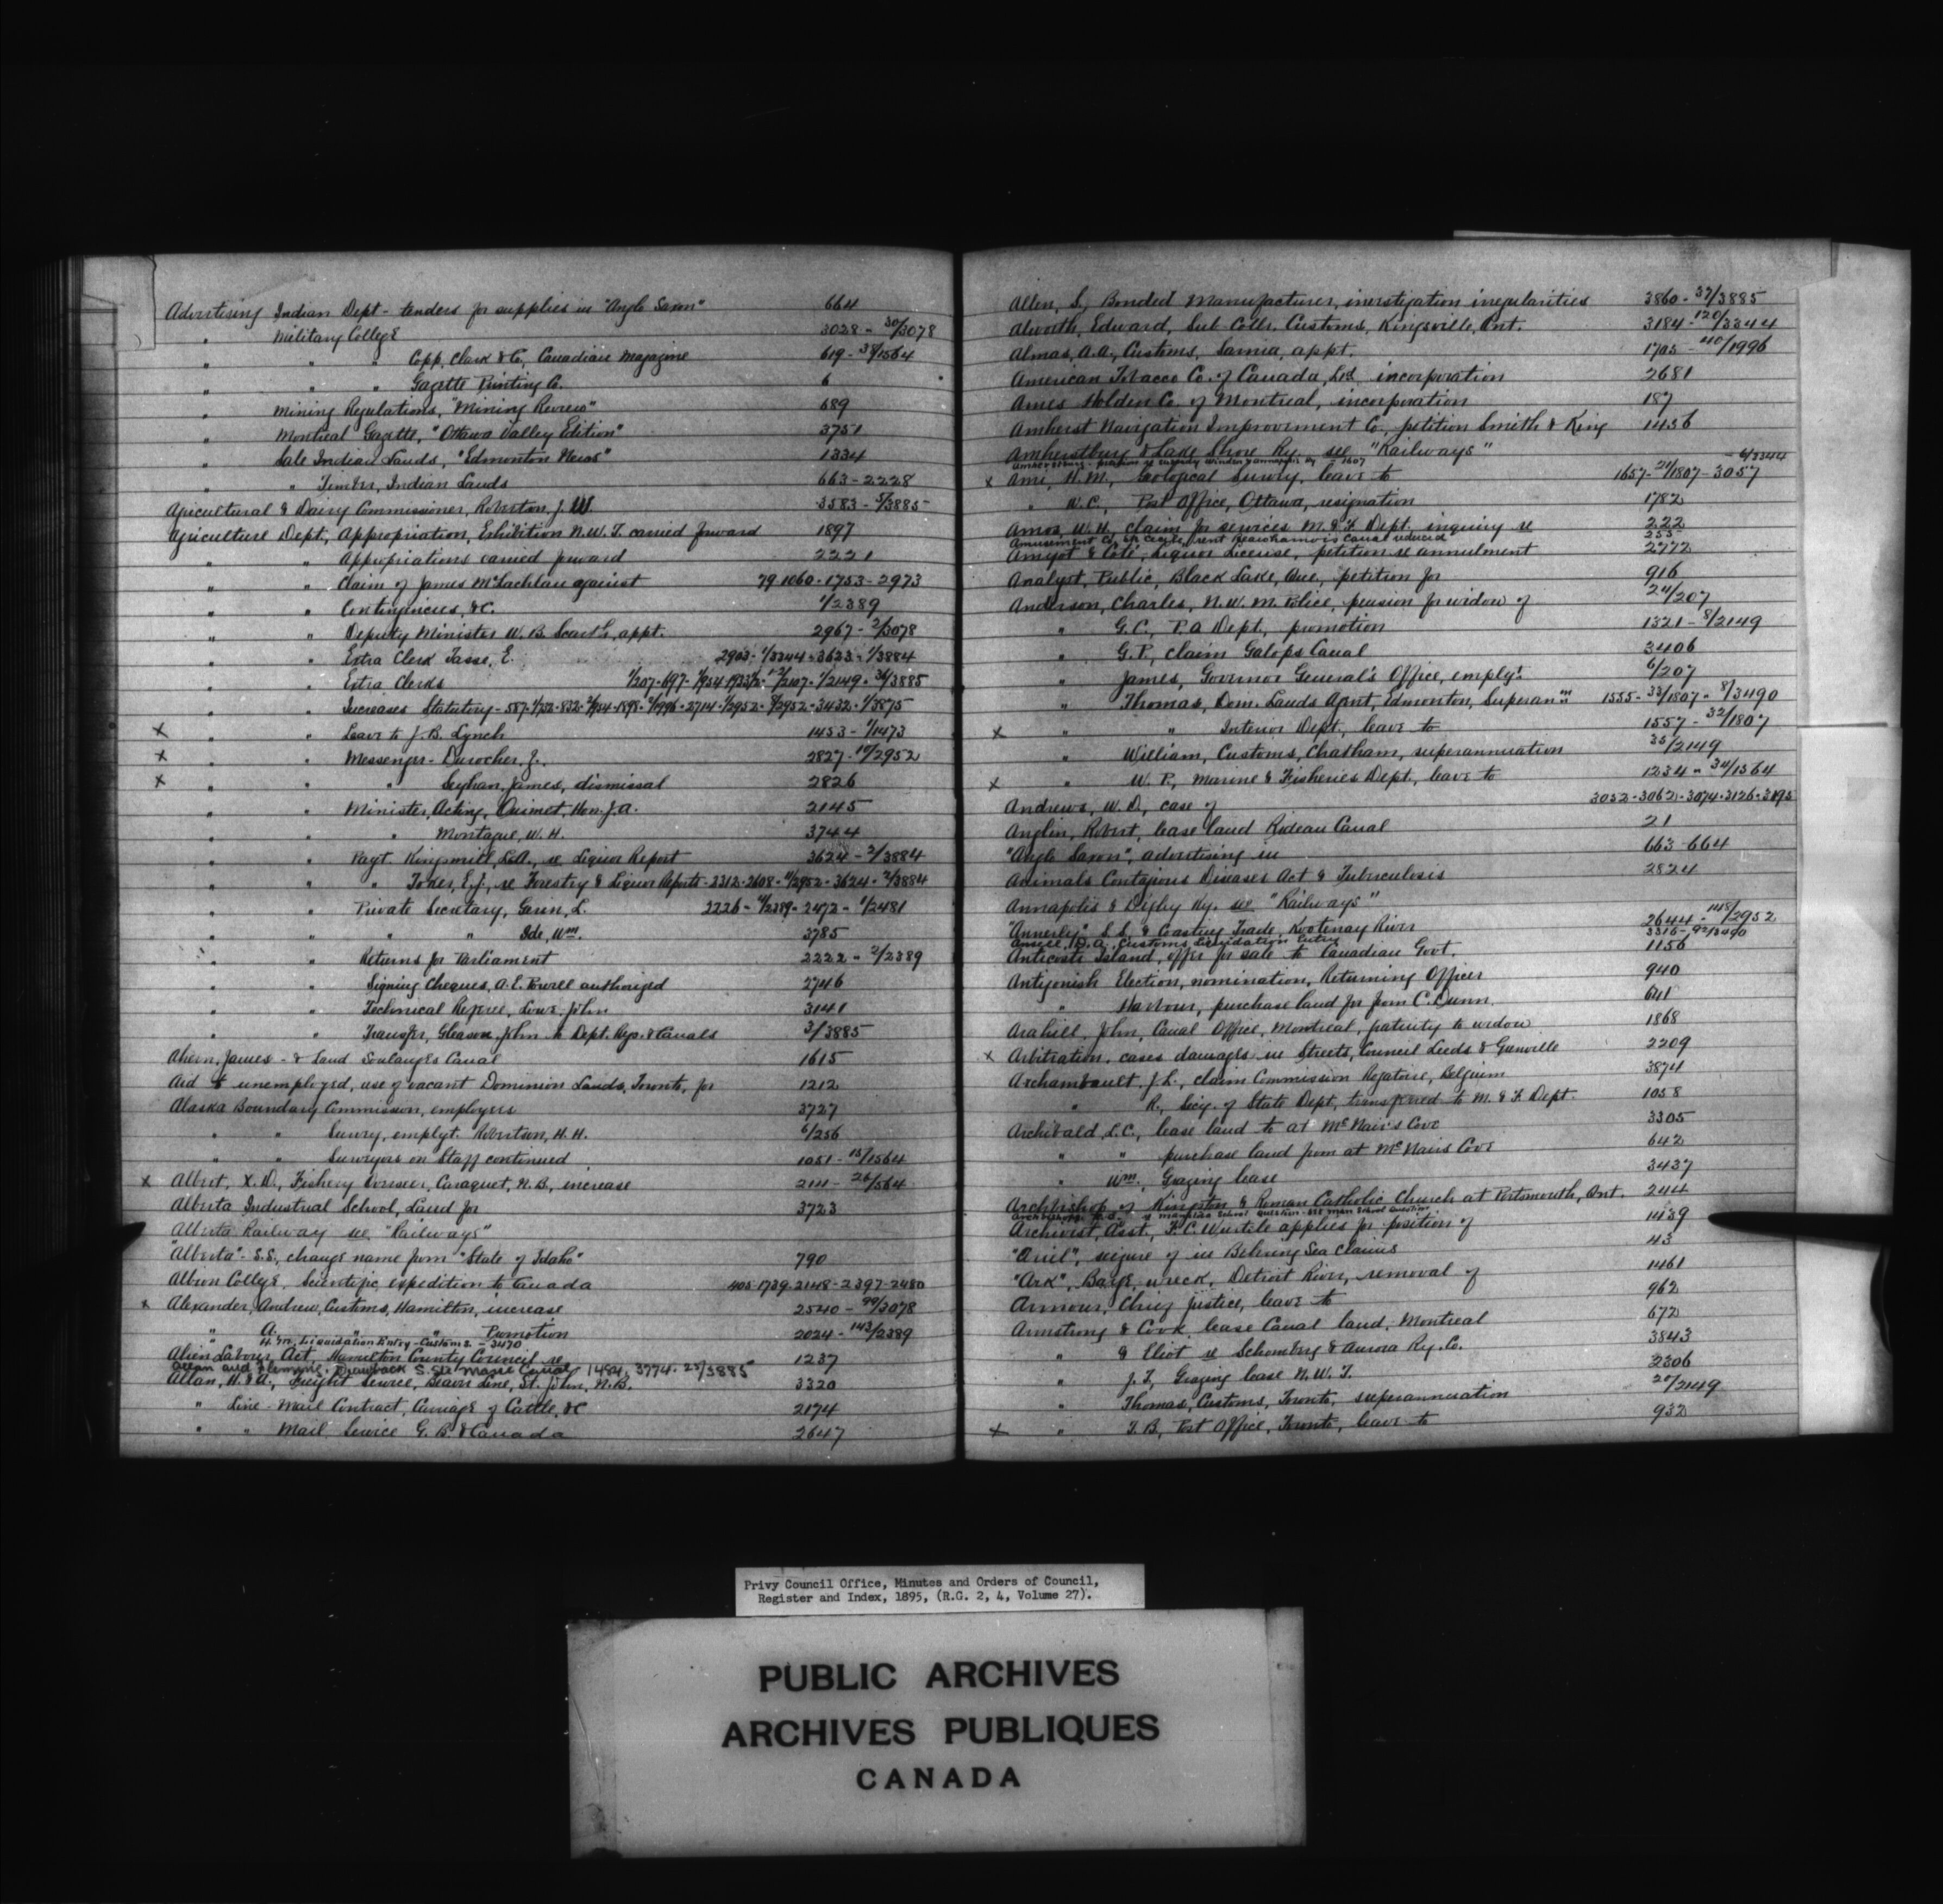 Advertising Indian Dept - tenders for supplies in "Anglo Saxon" 664
" Military College 3028 - 30/3078
" " " Copp, Clark & Co, Canadian Magazine 619 - 38/1564
" " " Gazette Printing Co. 6
" Mining Regulations, "Mining Review" 689
" Montreal Gazette, "Ottawa Valley Edition" 3751
" Sale Indian Lands, "Edmonton News" 1334
" " Timber, Indian Lands 663 - 2228
Agricultural & Dairy Commissioner, Robertson, J. W. 3583 - 5/3885
Agriculture Dept, Appropriation, Exhibition N.W.T. carried forward 1897
" " Appropriations carried forward 2221
" " Claim of James McLachlan against 79.1060.1753 - 2973
" " Contingencies, &c. 1/2389
" " Deputy Minister W. B. Scarth, appt. 2967 - 2/3078
" " Extra Clerk Tasse, E. 2903 - 1/3344 - 3623 - 1/3884
" " Extra Clerks
" " Increases Statutory
x " " Leave to J. B. Lynch 1453 - 1/1473
x " " Messenger - Durocher, J. 2827 - 10/2952
x " " " Leyhan, James, dismissal 2826
" " Minister, Acting, Ouimet, Hon. J. A. 2145
" " " Montague, W. H. 3744
" " Payt. Kingsmill, L.A., re Liquor Report 3624 - 2/3884
" " " Toker, E. J., re Forestry & Liquor Reports - 2312 - 2608 - 11/2952 - 3624 - 2/3884
" " Private Secretary, Garin, L. 2226 - 4/2389 - 2472 - 1/2481
" " " " Ide, Wm. 3785
" " Returns for Parliament 2222 - 2/2389
" " Signing Cheques, A. E. Powell authorized 2746
" " Technical Referee, Lowe, John 3141
" " Transfer, Gleason, John to Dept. Rys. & Canals 3/3885
Ahern, James - & Land Soulanges Canal 1615
Aid to unemployed, use of vacant Dominion Lands, Toronto, for 1212
Alaska Boundary Commission, employees 3727
" " Survey, emplyt. Robertson, H. H. 6/256
" " Surveyors on Staff continued 1051 - 15/1564
x Albert, X. D., Fishery Overseer, Caraquet, N.B., increase 2111 - 26/564
Alberta Industrial School, Land for 3723
Alberta Railway see "Railways"
"Alberta" - S.S., change name from "State of Idaho" 790
Albion College, Scientific expedition to Canada 405-1739-2148-2397-2480
x Alexander, Andrew, Customs, Hamilton, increase 2540 - 99/3078
" A. " " Promotion 2024 - 143/2389
H. Liquidation Entry - Customs - 3470
Alien Labour Act, Hamilton County Council re 1237
Allan and Fleming, Drawback S. Ste Marie Canal 1484, 3774. 25/3885
Allan, H. & A., Freight Service, Beaver Line, St. John, N.B. 3320
" Line - Mail Contract, Carriage of Cattle, &c 2174
" " Mail Service G. B. & Canada 2647
Allen, S., Bonded Manufacturer, investigation irregularities 3860 - 37/3885
Alworth, Edward, Sub-Collr. Customs, Kingsville, Ont. 3184 - 120/3344
Almas, A.A., Customs, Sarnia, appt. 1705 - 110/1996
American Tobacco Co. of Canada, Ltd. incorporation 2681
Ames Holden Co. of Montreal, incorporation 187
Amherst Navigation Improvement Co., petition Smith & King 1456
Amherstburg & Lake Shore Ry. see "Railways"
x Ami, H. M., Geological Survey, leave to 1657 - 24/1807 - 3057 - 6/3344
" W. C., Post Office, Ottawa, resignation 1782
Amos, W. H., claim for services M. & F. Dept. inquiry re 222
Amusement Co. rent Beauharnois Canal reduced 255
Amyot & Coté, Liquor License, petition re annulment 2772
Analyst, Public, Black Lake, Que, petition for 916
Anderson, Charles, N.W.M. Police, pension for widow of 24/207
" G.C., P.O. Dept, promotion 1321 - 8/2149
" G. P., claim Galops Canal 3406
" James, Governor General's Office, emplyt. 6/207
" Thomas, Dom. Lands Agent, Edmonton, Superann 1555 - 33/1807 - 8/3490
x " " Interior Dept., leave to 1557 - 32/1807
" William, Customs, Chatham, superannuation 35/2149
x " W. P., Marine & Fisheries Dept, leave to 1234 - 34/1564
Andrews, W. D., case of 3052 - 3062 - 3074 - 3126 - 3195
Anglin, Robert, lease land Rideau Canal 21
"Anglo Saxon", advertising in 663-664
Animals Contagious Diseases Act & Tuberculosis 2824
Annapolis & Digby Ry. see "Railways"
"Annerly" S.S. & Coasting Trade, Kootenay River 2644 - 148/2952
Ansell, D. A. Customs Liquidation Entry
Anticosti Island, offer for sale to Canadian Govt. 1156
Antigonish Election, nomination, Returning Officer 940
" Harbour, purchase land for from C. Dunn. 641
Arahill, John, Canal Office, Montreal, gratuity to widow 1868
x Arbitration, cases damages in Streets, Council Leeds & Grenville 2209
Archambault, J. L., claim Commission Rogatoire, Belgium 3874
" R., Secy. of State Dept, transferred to M. & F. Dept. 1058
Archibald, L.C., lease land to at McNair's Cove 3305
" " purchase land from at McNairs Cove 642
" Wm., Grazing lease 3437
Archbishop of Kingston & Roman Catholic Church at Portsmouth, Ont. 244
Archivist, Asst., F. C. Wurtele applies for position of 1139
"Ariel", seizure of in Behring Sea Claims 43
"Ark", Barge wreck, Detroit River, removal of 1461
Armour, Chief Justice, leave to 962
Armstrong & Cook, lease Canal land, Montreal 672
" & Eliot re Schomberg & Aurora Ry. Co. 3843
" J. T., Grazing lease N.W.T. 2306
" Thomas, Customs, Toronto, superannuation 20/2149
x " T. B., Post Office, Toronto, leave to 932
Privy Council Office, Minutes and Orders of Council,
Register and Index, 1895, (R.G. 2, 4, Volume 27).
PUBLIC ARCHIVES
ARCHIVES PUBLIQUES
CANADA